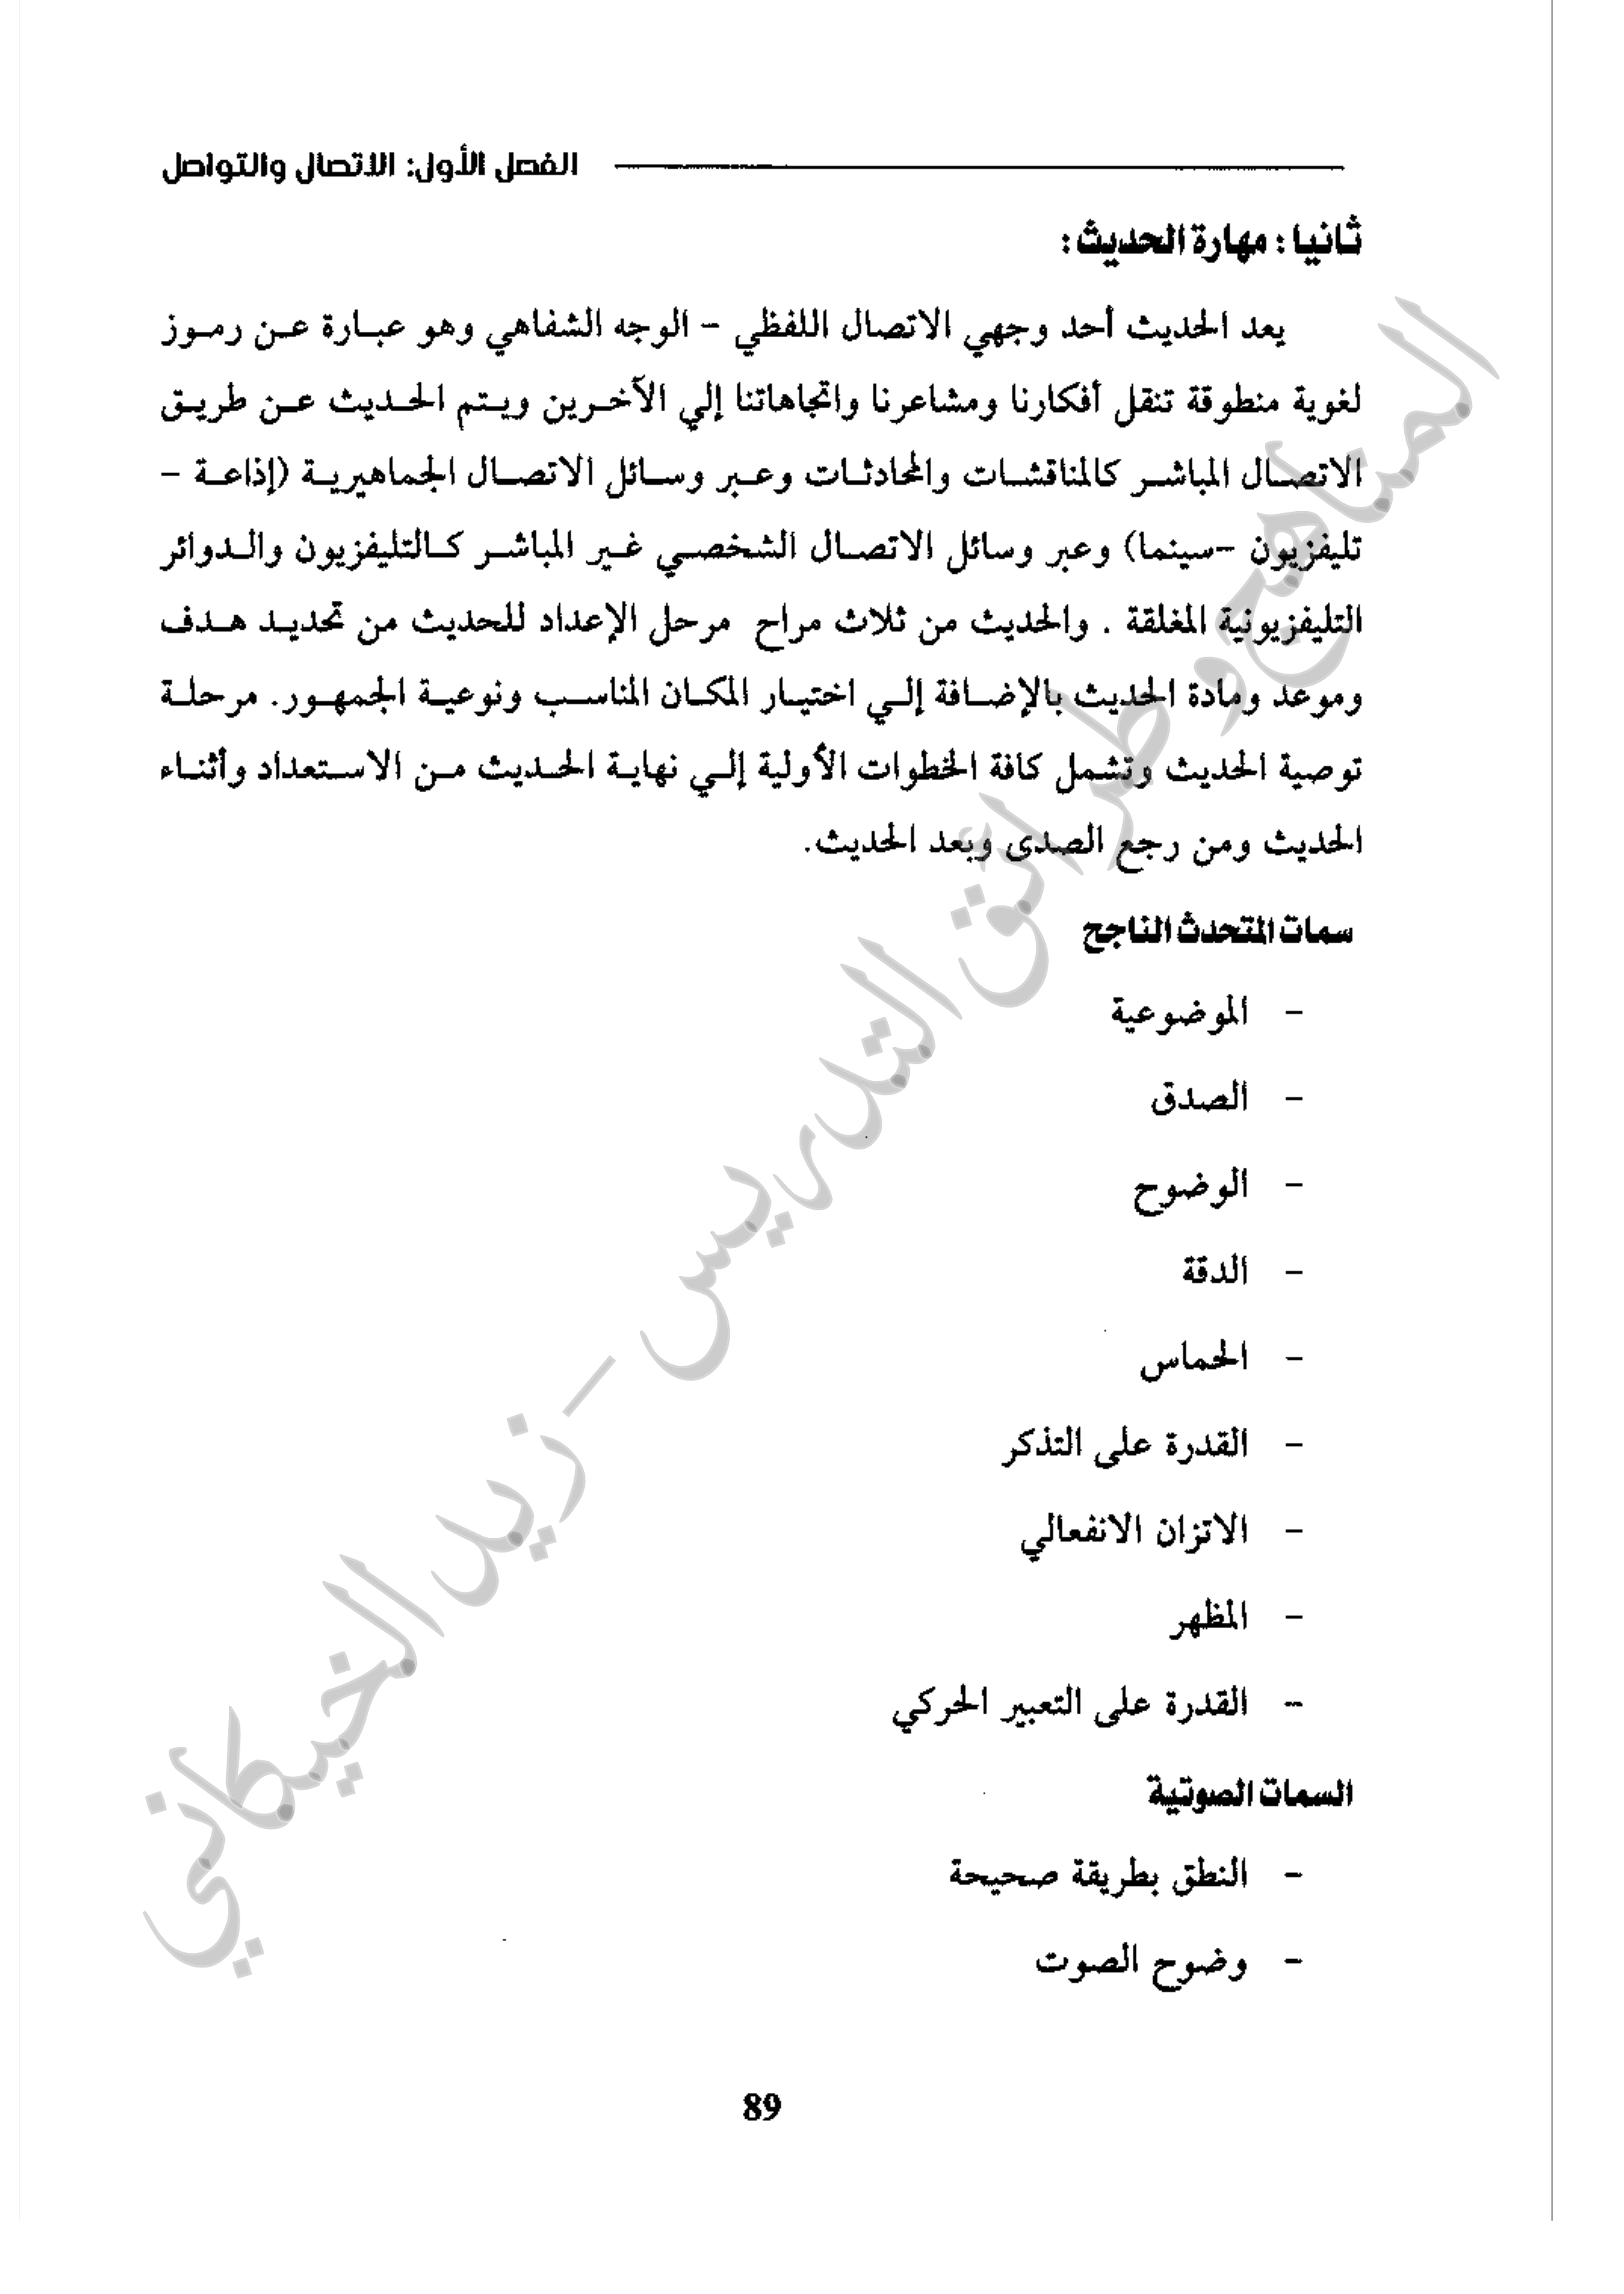 الفصل الأول: الاتصال والتواصل
ثانيا : مهارة الحديث :
يعد الحديث أحد وجهي الاتصال اللفظي – الوجه الشفاهي وهو عبارة عن رموز
لغوية منطوقة تنقل أفكارنا ومشاعرنا واتجاهاتنا إلي الآخرين ويتم الحديث عن طريق
الاتصال المباشر كالمناقشات والمحادثات وعبر وسائل الاتصال الجماهيرية (إذاعة –
تليفزيون –سينما) وعبر وسائل الاتصال الشخصي غير المباشر كالتليفزيون والدوائر
التليفزيونية المغلقة . والحديث من ثلاث مراح مرحل الإعداد للحديث من تحديد هدف
وموعد ومادة الحديث بالإضافة إلي اختيار المكان المناسب ونوعية الجمهور. مرحلة
توصية الحديث وتشمل كافة الخطوات الأولية إلي نهاية الحديث من الاستعداد وأثناء
الحديث ومن رجع الصدى وبعد الحديث.
سمات المتحدث الناجح
– الموضوعية
– الصدق
– الوضوح
– الدقة
– الحماس
– القدرة على التذكر
– الاتزان الانفعالي
– المظهر
– القدرة على التعبير الحركي
السمات الصوتية
– النطق بطريقة صحيحة
– وضوح الصوت
89
المناهج وطرائق التدريس – زيد الخيكاني